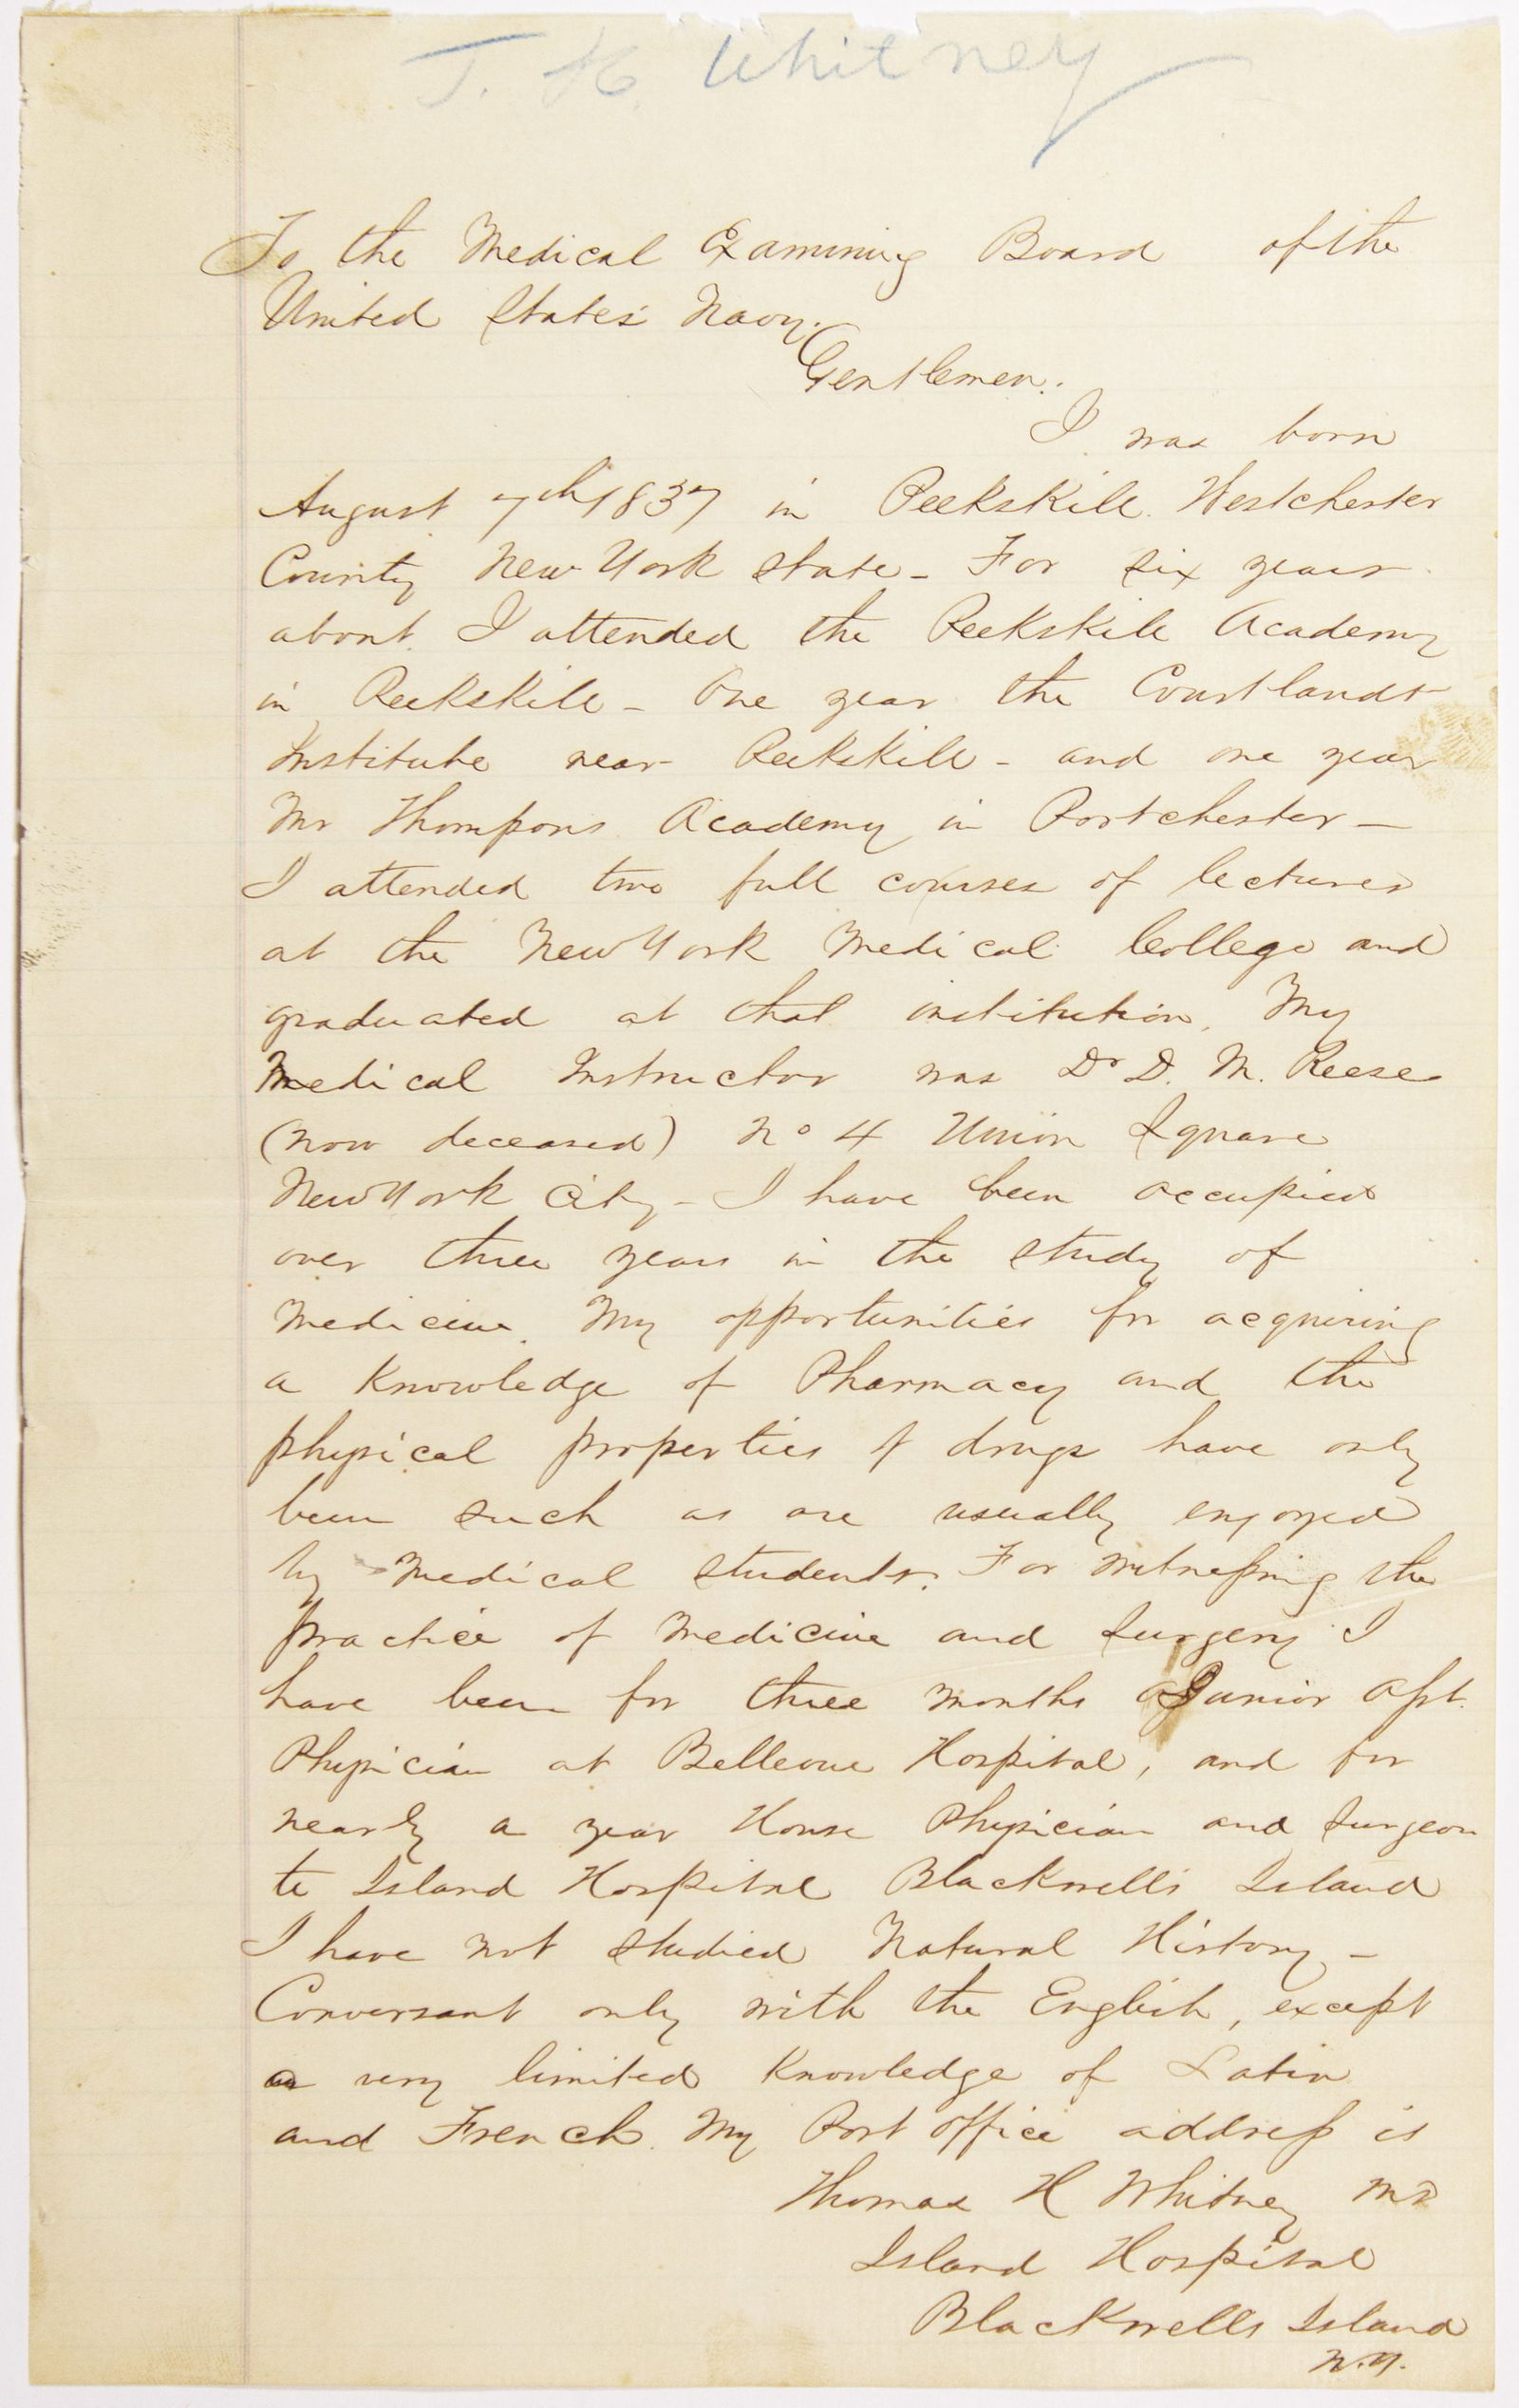 T. H. Whitney
To the Medical Examining Board of the
United States Navy.
Gentlemen.
I was born
August 7th 1837 in Peekskill Westchester
County New York State - For six years
about I attended the Peekskill Academy
in Peekskill - One year the Courtlandt
Institute near Peekskill - and one year
Mr Thompsons Academy in Portchester -
I attended two full courses of lectures
at the New York Medical College and
graduated at that institution. My
Medical Instructor was Dr D. M. Reese
(now deceased) No 4 Union Square
New York City - I have been occupied
over three years in the study of
Medicine. My opportunities for acquiring
a Knowledge of Pharmacy and the
physical properties of drugs have only
been such as are usually enjoyed
by Medical Students. For witnessing the
practice of Medicine and Surgery I
have been for three months Junior Asst.
Physician at Bellevue Hospital, and for
nearly a year House Physician and Surgeon
to Island Hospital Blackwells Island
I have not studied Natural History -
Conversant only with the English, except
a very limited Knowledge of Latin
and French. My Post office address is
Thomas H Whitney MD
Island Hospital
Blackwells Island
N.Y.